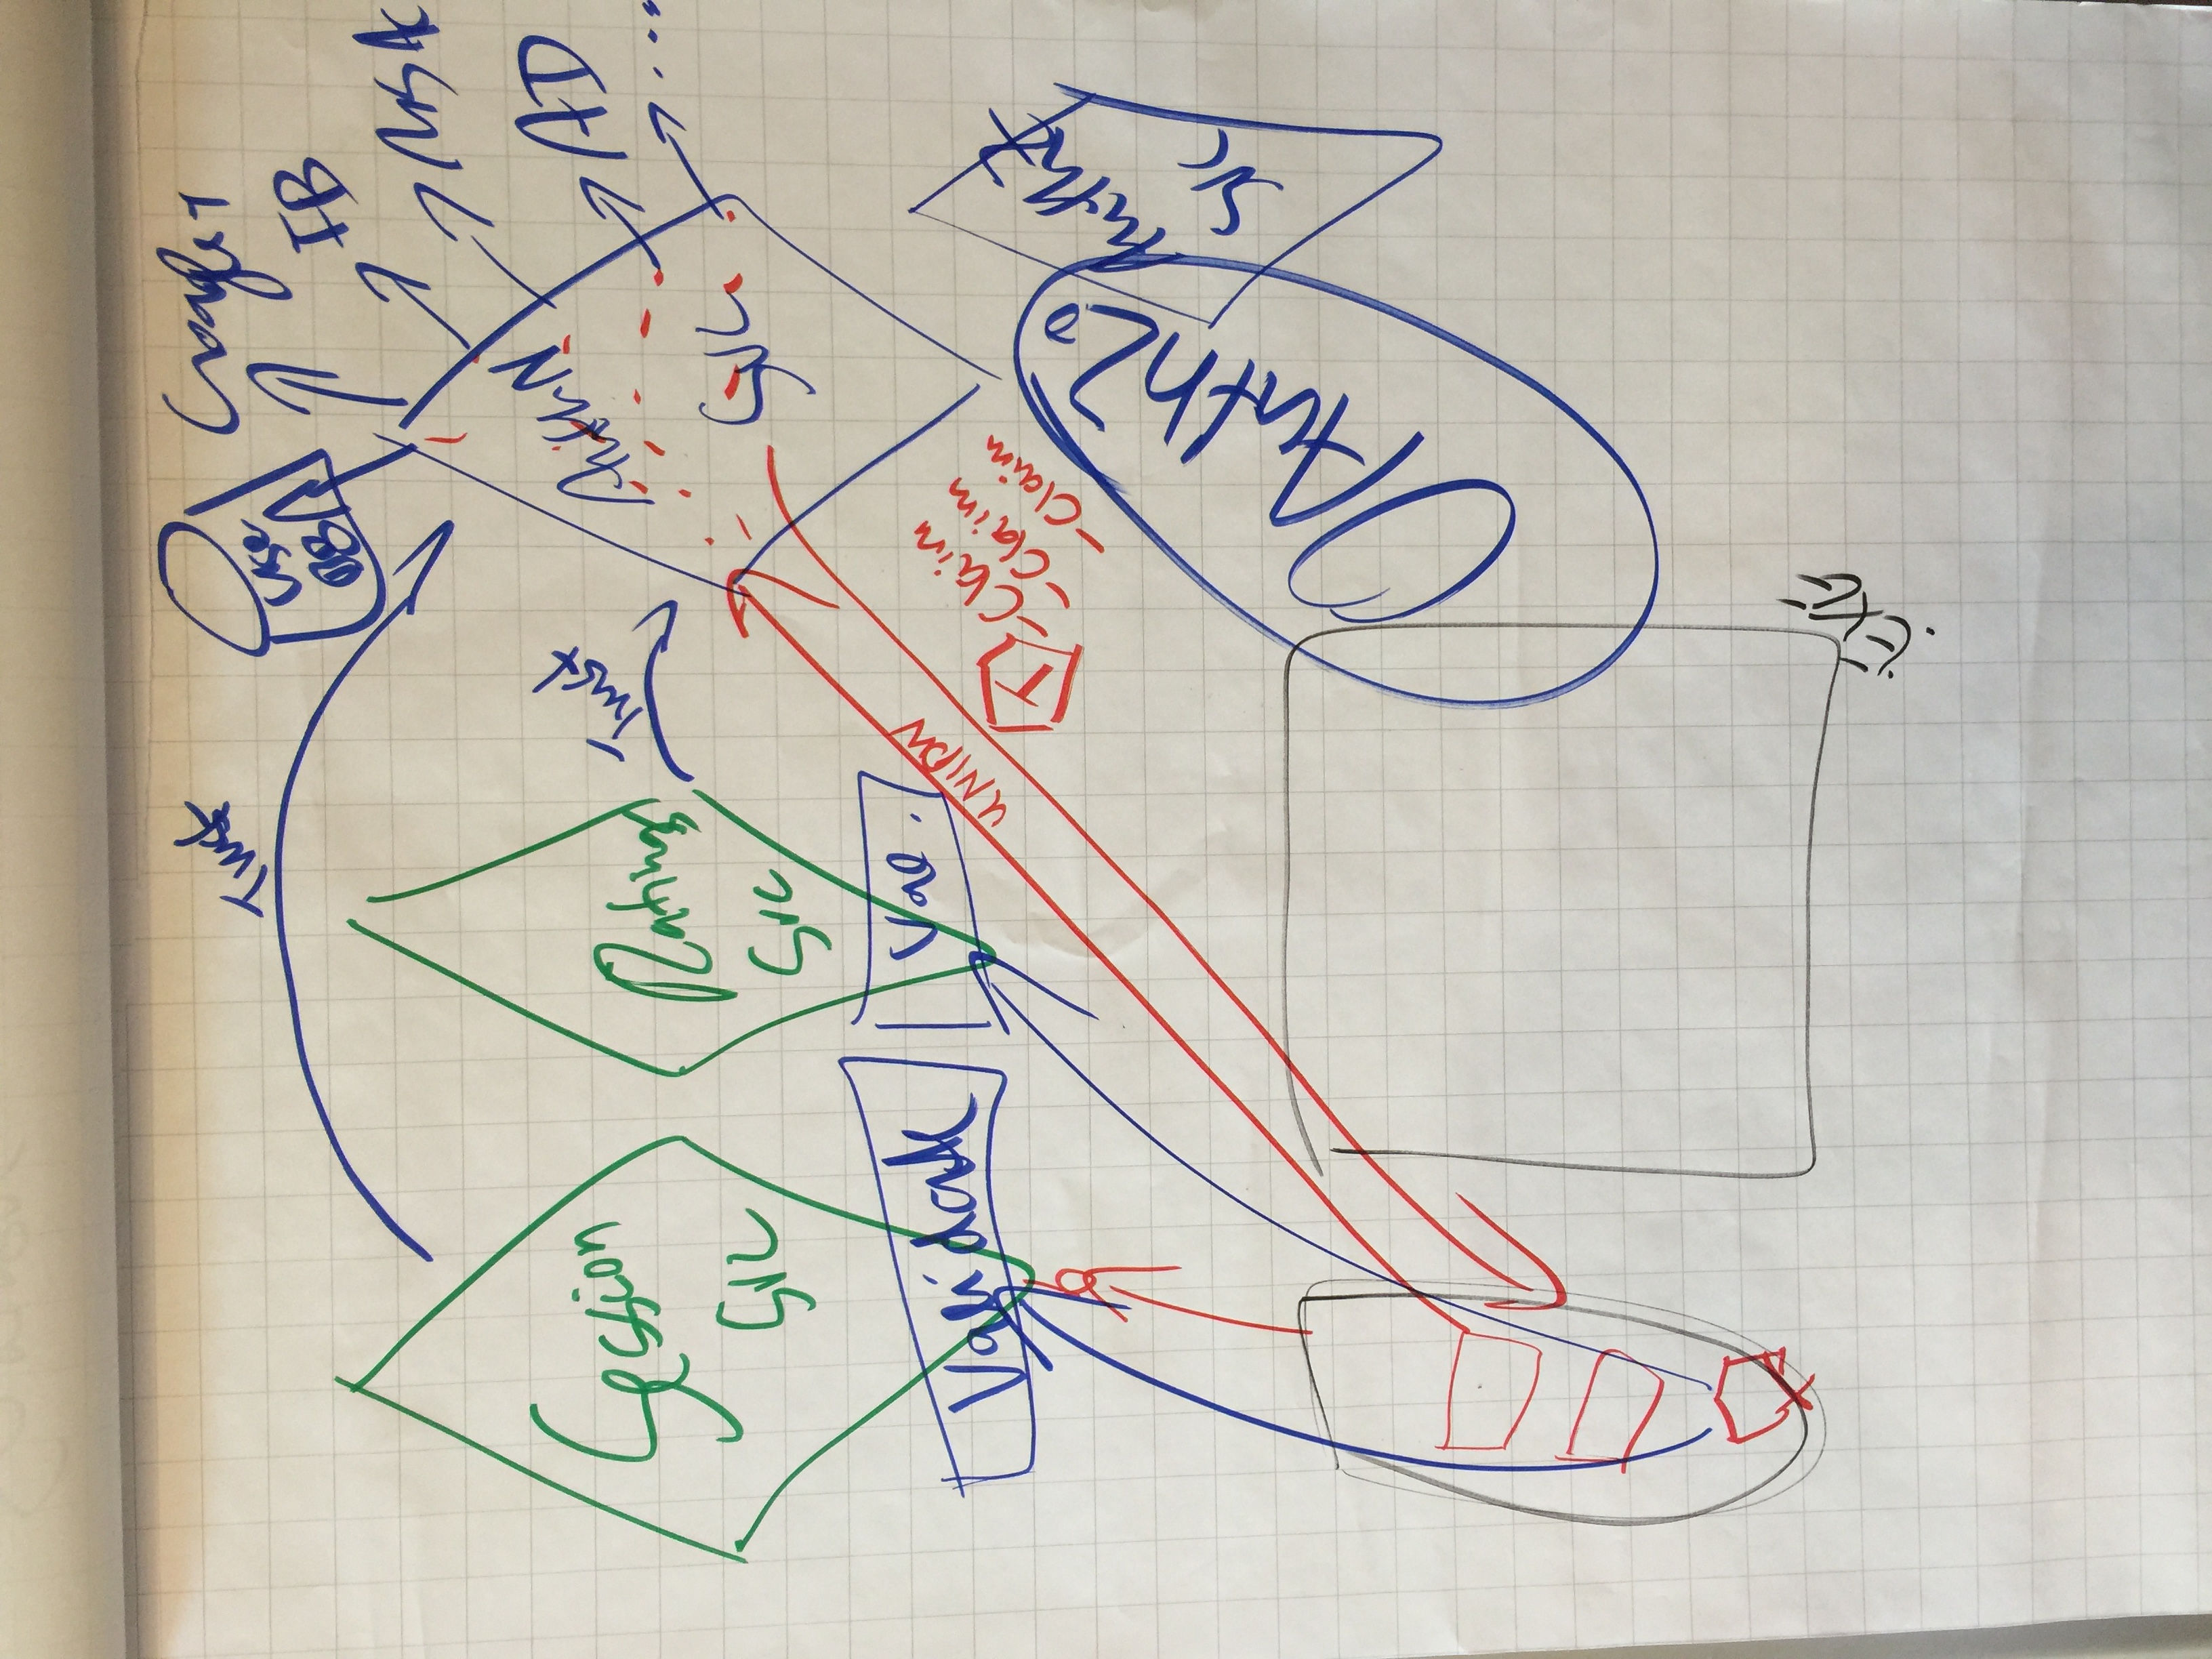 Trust
User
DB
Google+
FB
MS Ac
AD
...
Session
Src
Ratings
Src
Trust
AuthN
Src
Validate
Val.
UN/PW
T
-Claim
-Claim
-Claim
OAuth2.0
AuthZ
Src
.EXE